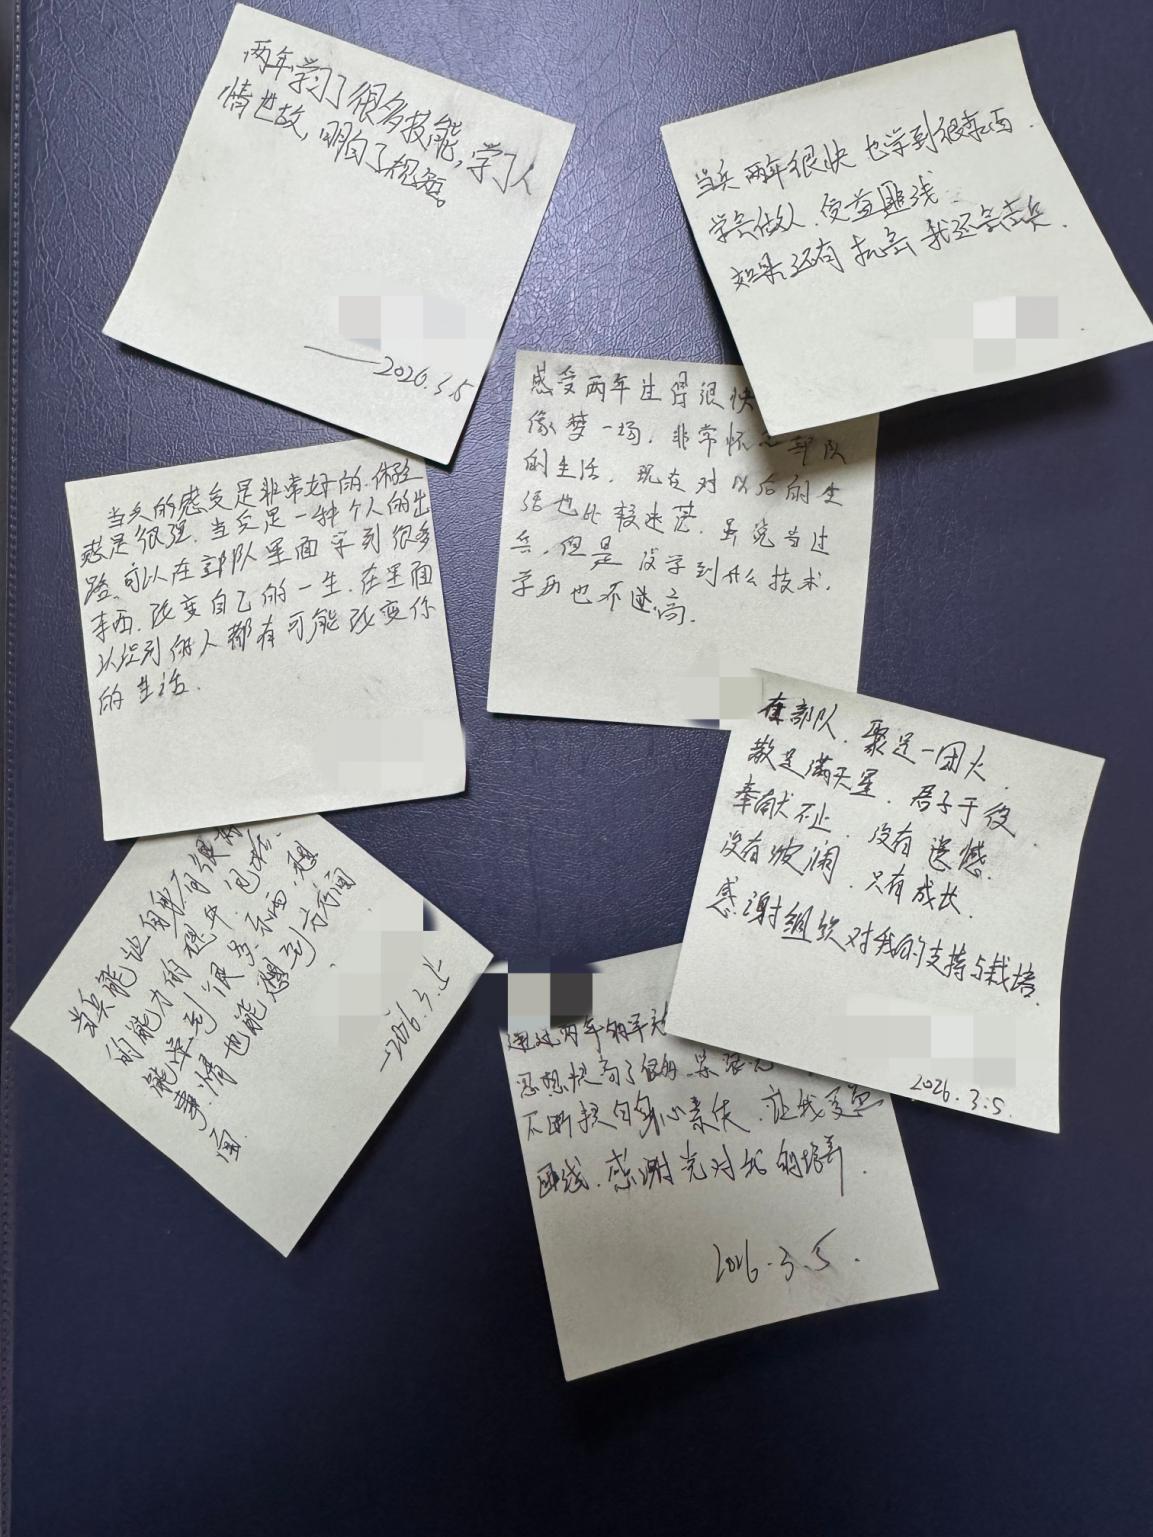 两年学习了很多技能，学了人
情世故，明白了规矩。
——2026.3.5
当兵两年很快 也学到很东西.
学会做人.受益匪浅.
如果还有机会 我还会去兵.
感受两年过得很快
像梦一场.非常怀念部队
的生活.现在对以后的生
活也比较迷茫.虽说当过
兵,但是没学到什么技术.
学历也不逮高.
当兵的感受是非常好的.体验
感是很强.当兵是一种个人的出
路.可以在部队里面学到很多
东西.改变自己的一生.在里面
认识到的人都有可能改变你
的生活.
在部队.聚是一团火
散是满天星.君子于役
奉献不止.没有遗憾.
没有波澜.只有成长.
感谢组织对我的支持与栽培.
2026.3.5.
当兵能让自己有很
的能力的提升.包括.
能学到很多东西.想
事情也能想到方方面
面.
—2026.3.5
通过两年的军
思想提高了很多
不断提自身心素质.让我受益
匪浅.感谢党对我的培养.
2026.3.5.